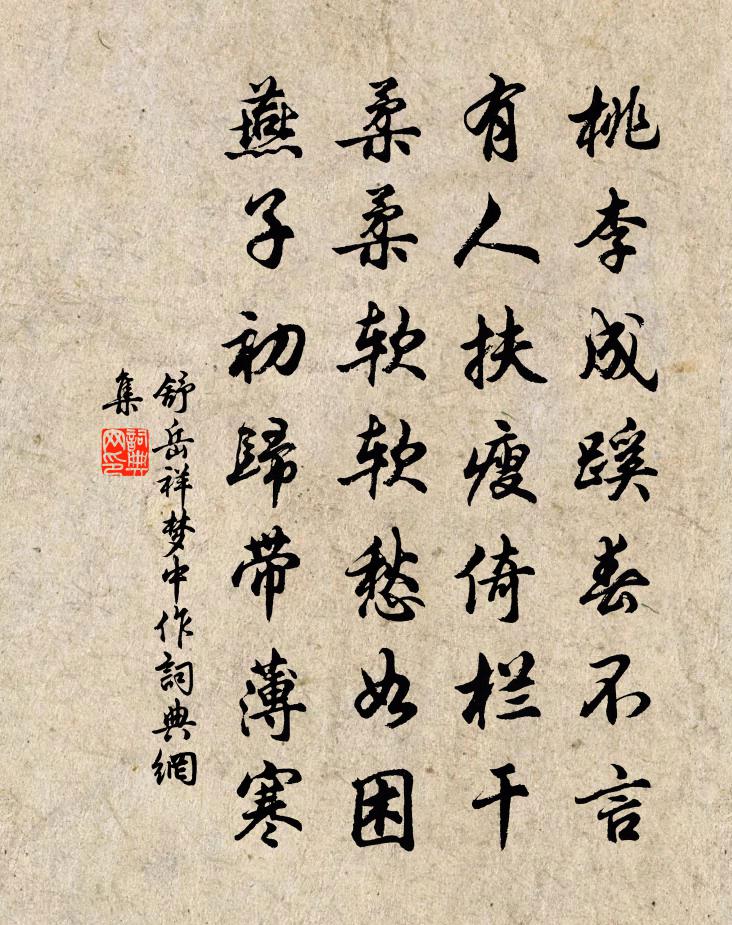 桃李成蹊春不言
有人扶瘦倚栏干
柔柔软软愁如困
燕子初歸带薄寒
舒岳祥梦中作詞典網
集
詞典
网印